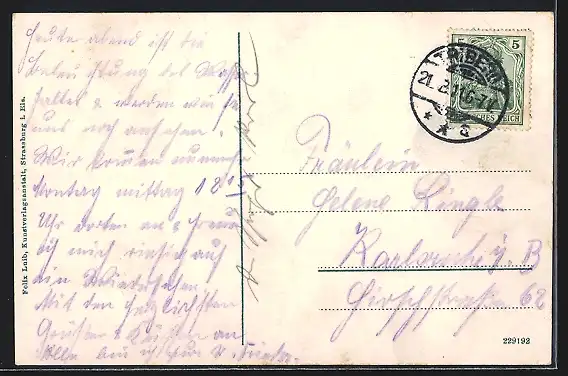 Heute abend ist die
Beleuchtung des Wasser
falles & werden wir
uns noch ansehen.
Wir kommen nunmehr
Sonntag mittag 12 15
Uhr dorten an & freue
ich mich riesig auf
ein Wiedersehen.
Mit den herzlichsten
Grüßen & Küssen an
alle bin ich
Felix Luib, Kunstverlagsanstalt, Strassburg i. Els.
5 5
TRIBERG
21. 6-7
DEUTSCHES REICH
Fräulein
Helene Ringle
Karlsruhe i. B
Hirschstraße 62
229192